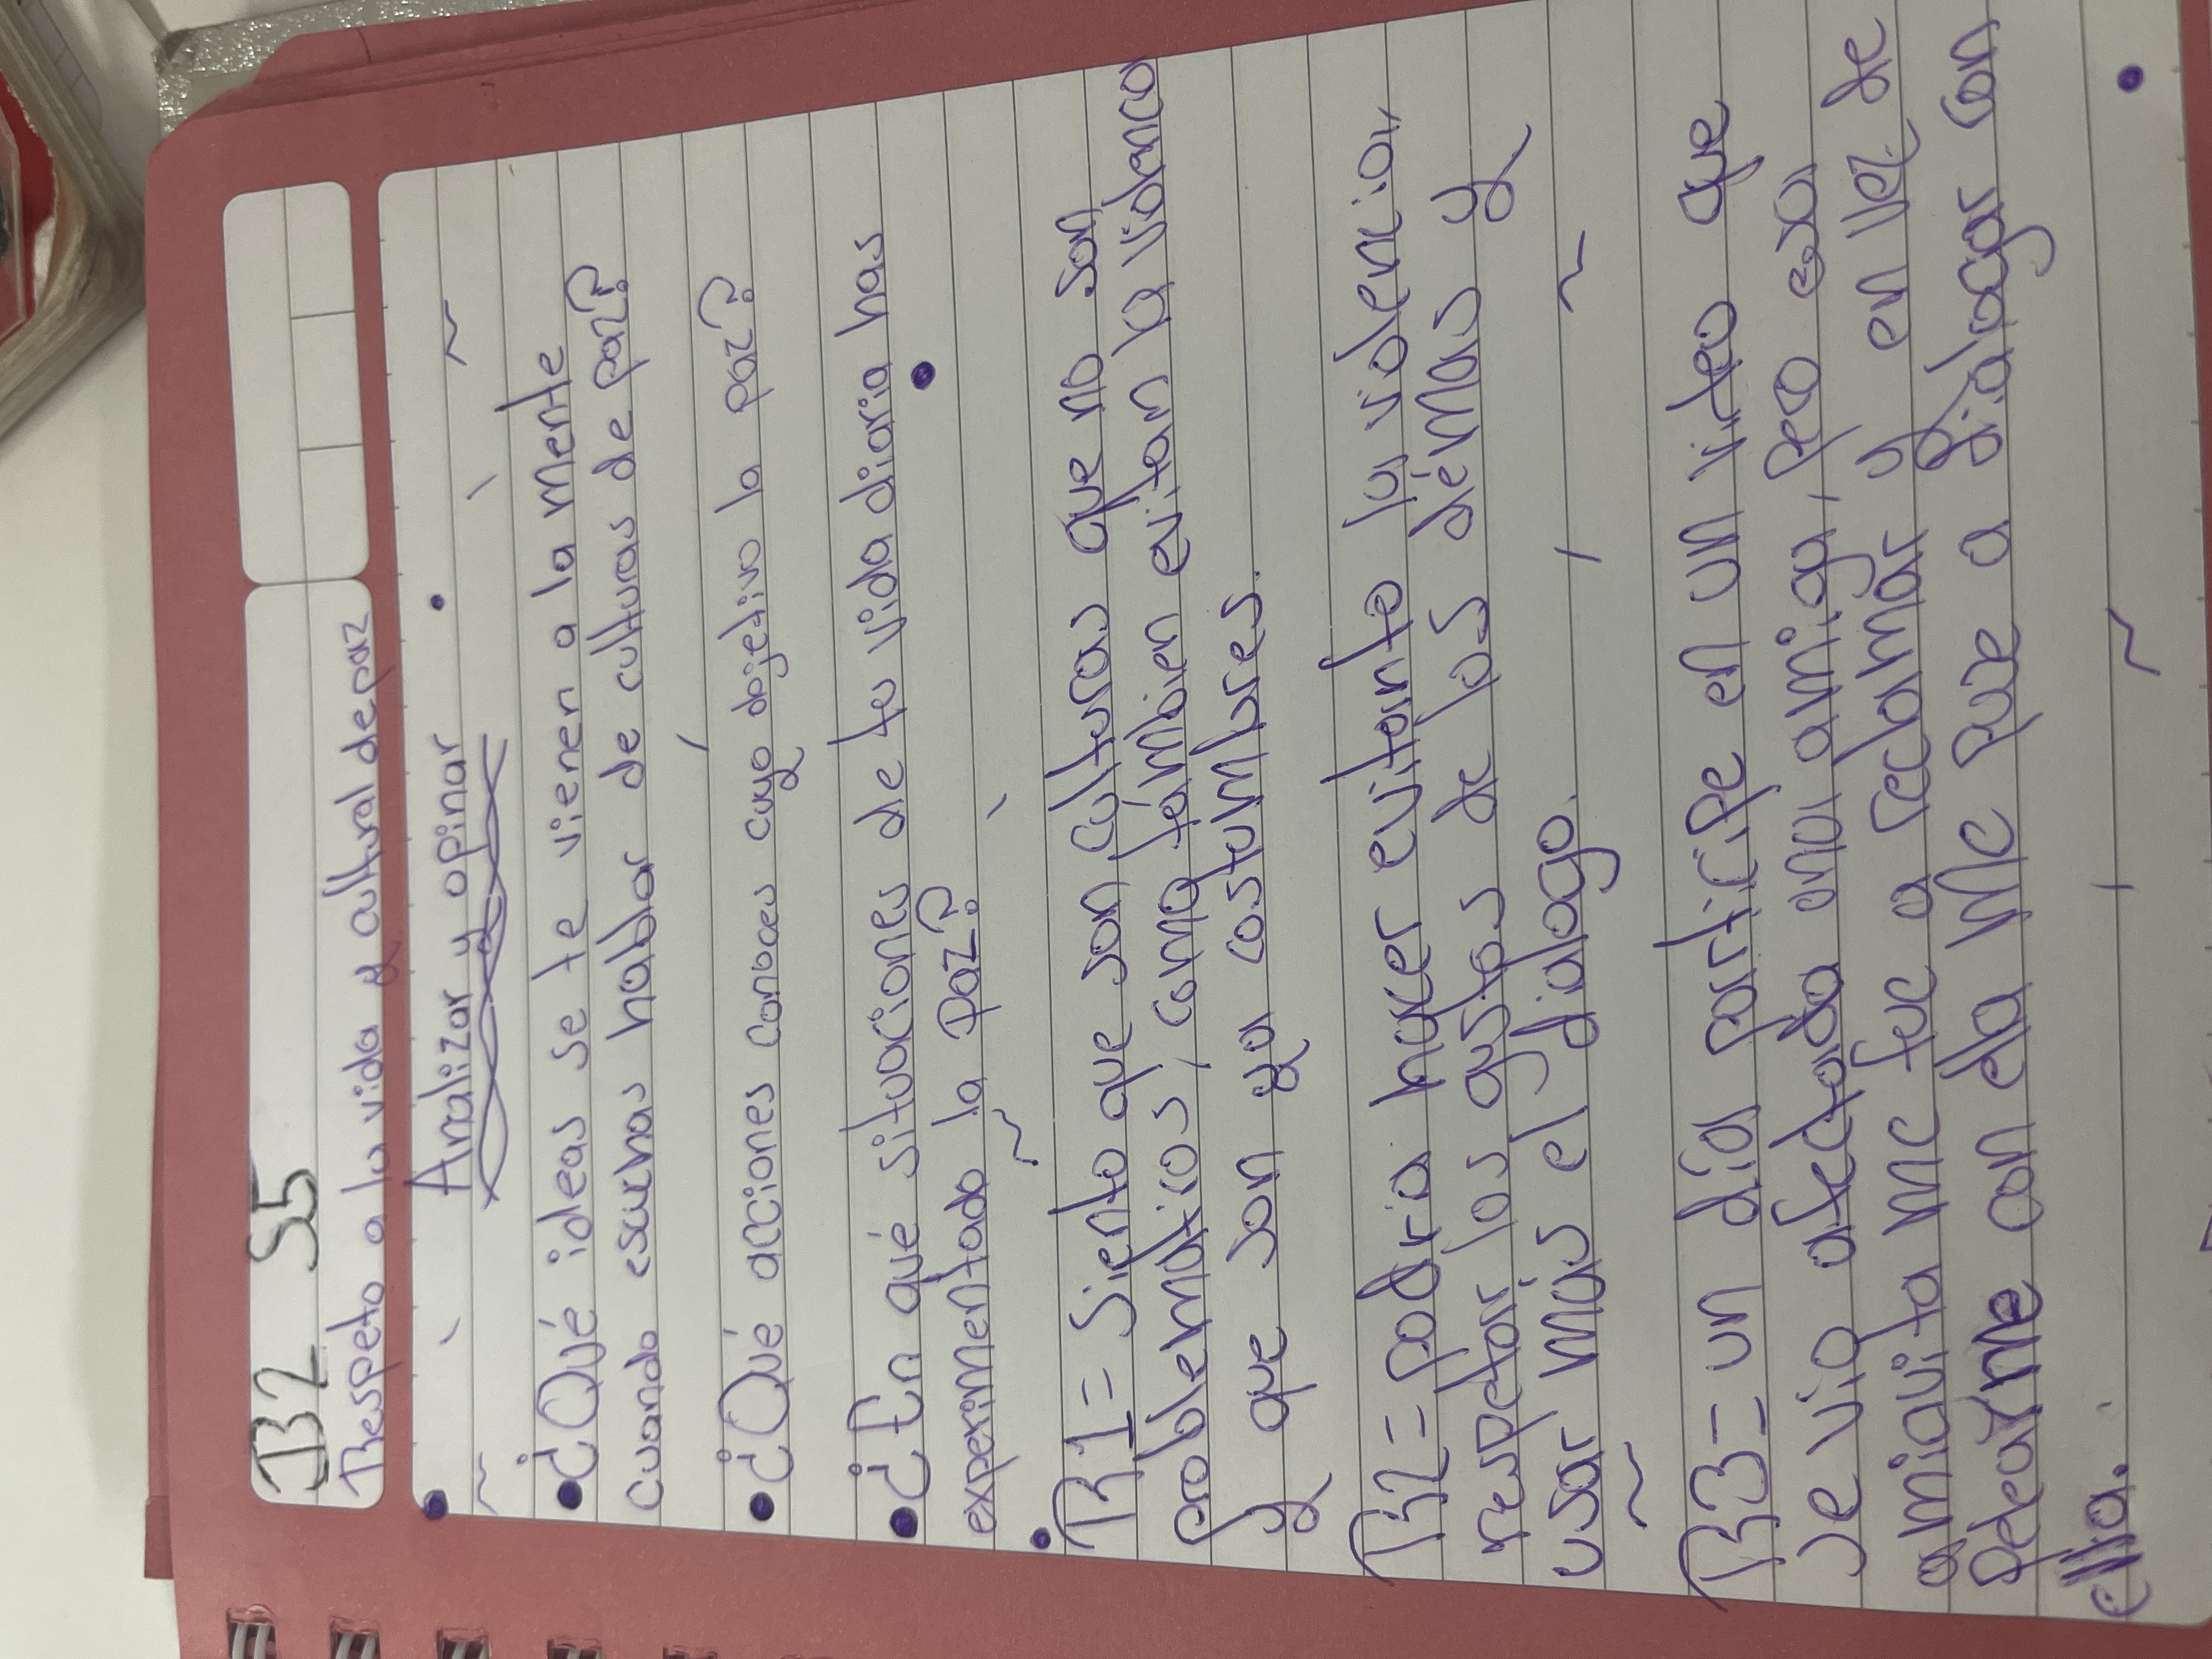 B2 S5
Respeto a la vida y cultural de paz
Analizar y opinar
• ¿Qué ideas se te vienen a la mente
cuando escuchas hablar de culturas de paz?
• ¿Qué acciones conoces cuyo objetivo la paz?
• ¿En qué situaciones de tu vida diaria has
experimentado la paz?
R1= Siento que son culturas que no son
problematicos, como tambien evitan la violencia
y que son ya costumbres.
R2= podria hacer evitando la violencia
respetar los gustos de los démas y
usar más el dialogo.
R3= un día participe en un video que
se vio afectada una amiga, pero esa
amiguita me fue a reclamar y en vez de
pelearme con ella me puse a dialogar con
ella.